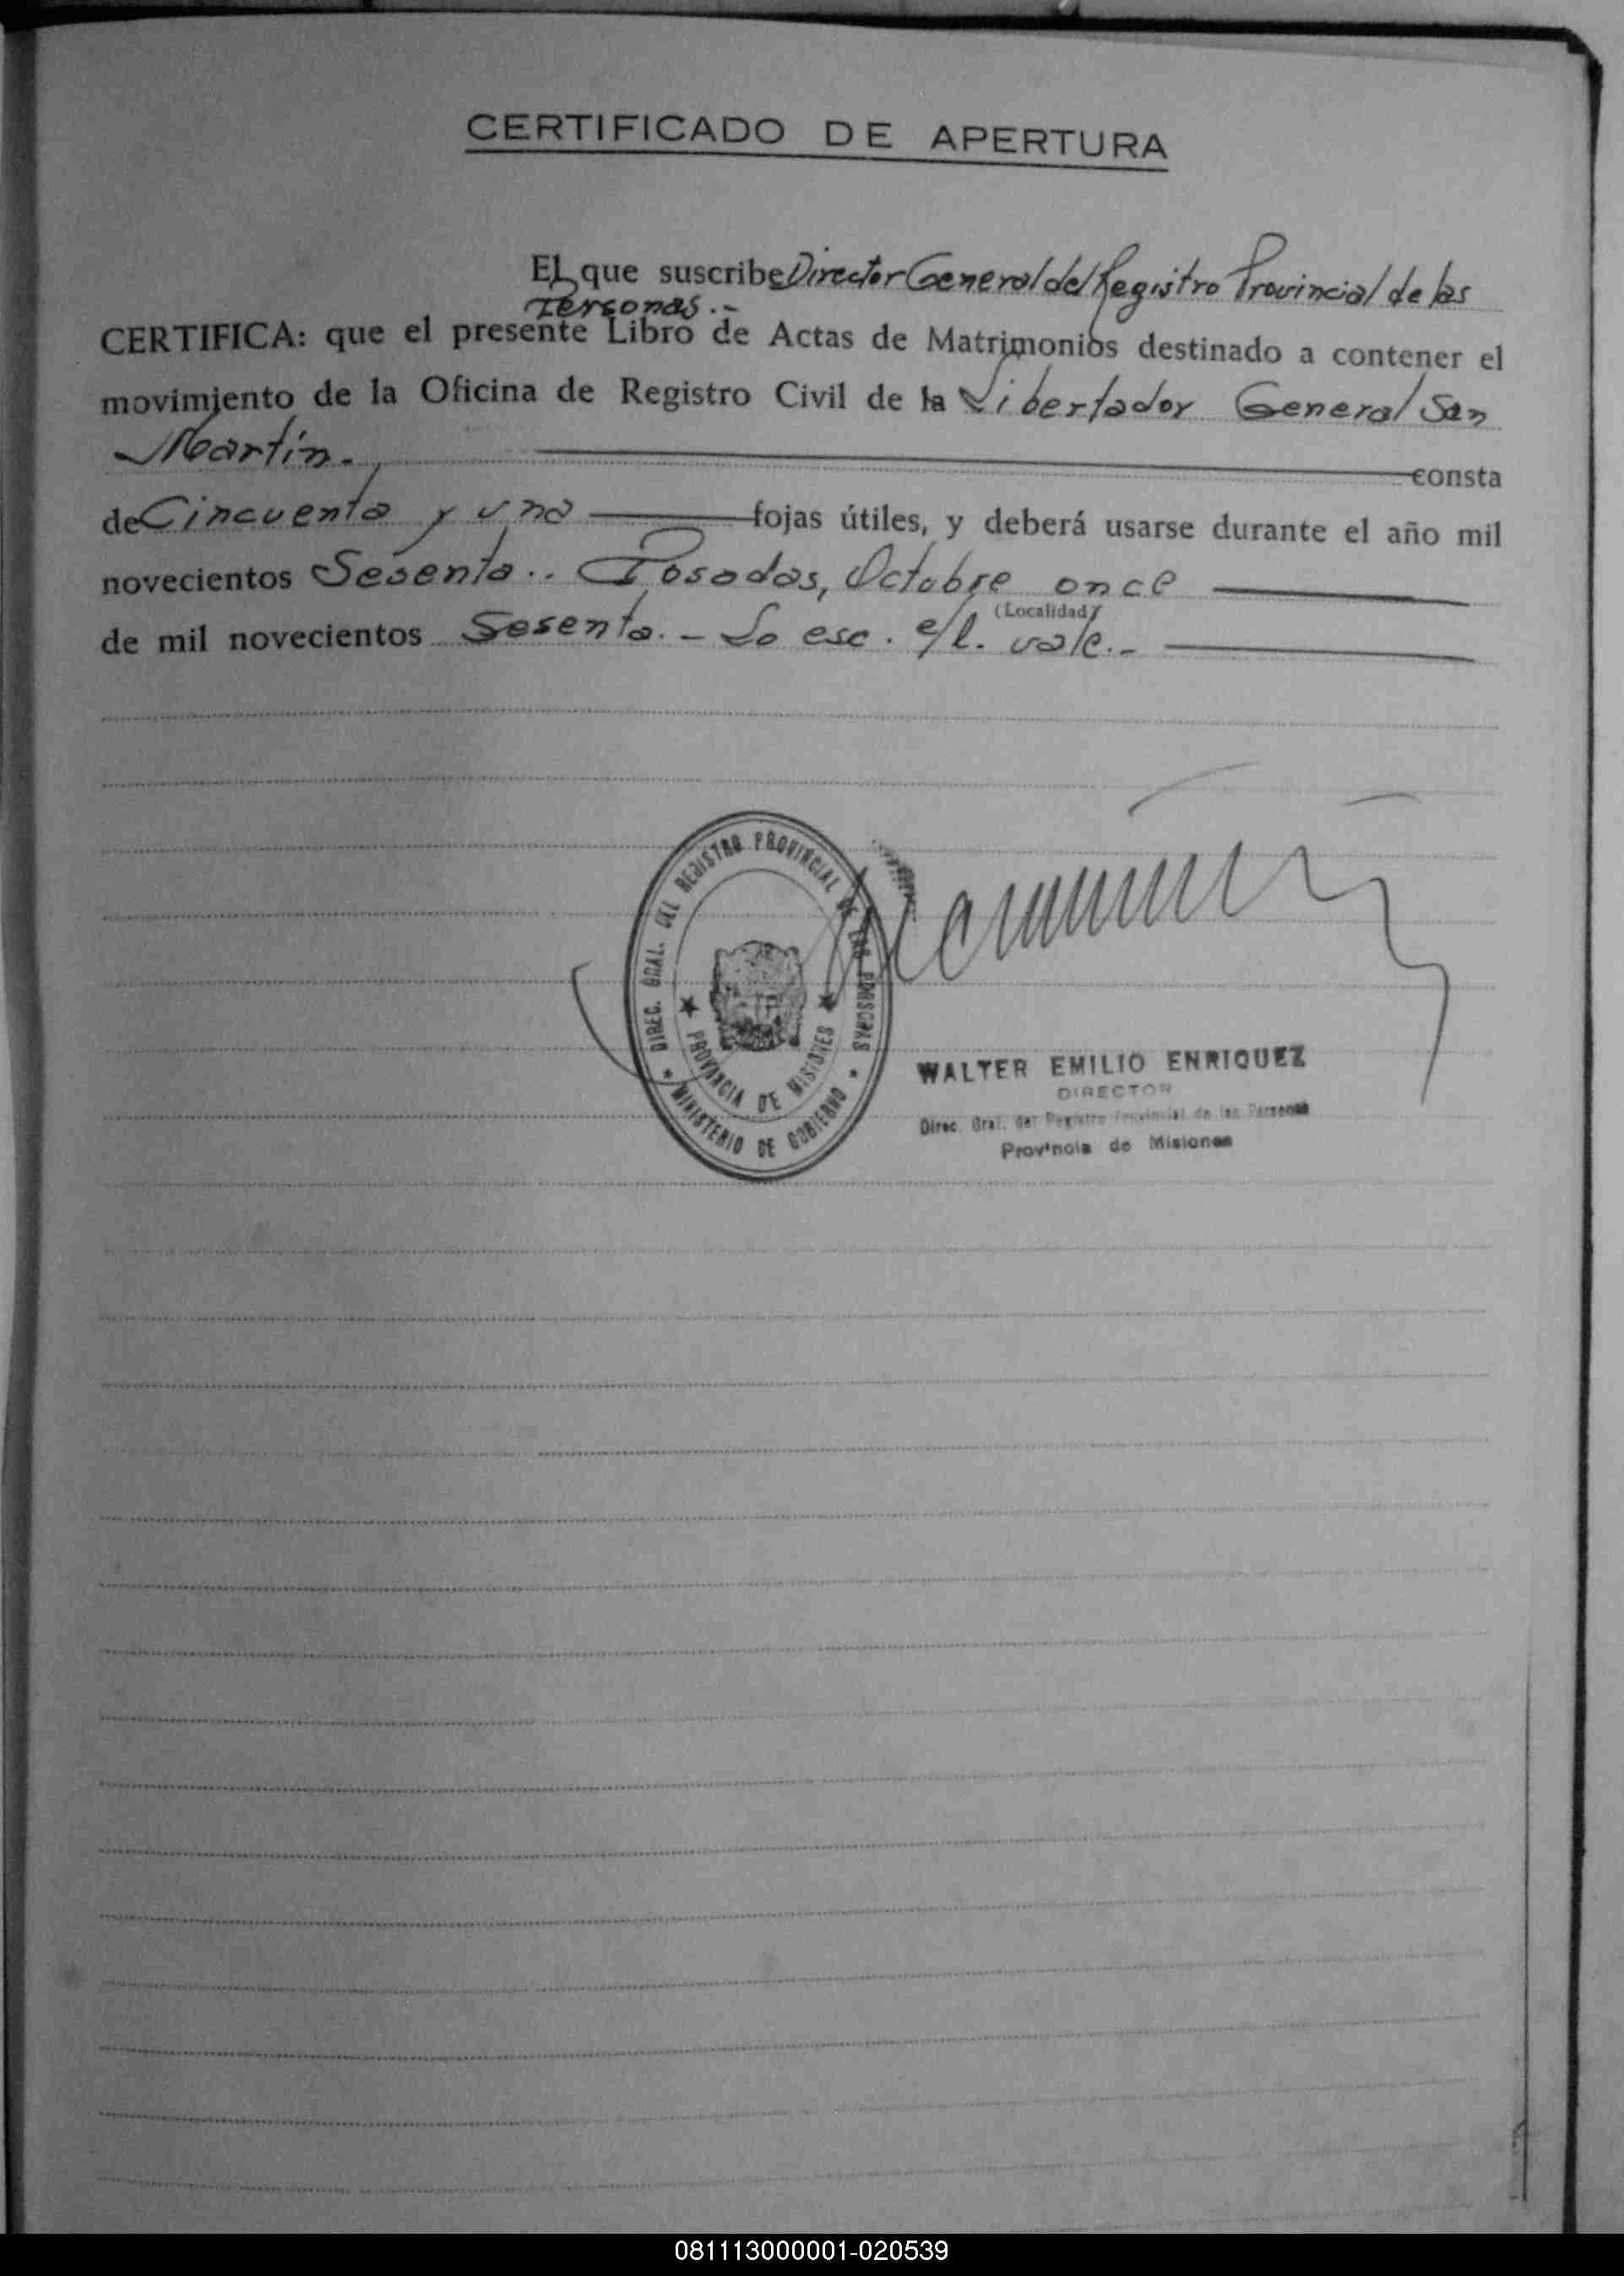 CERTIFICADO DE APERTURA
El que suscribe Director General del Registro Provincial de las
Personas.-
CERTIFICA: que el presente Libro de Actas de Matrimonios destinado a contener el
movimiento de la Oficina de Registro Civil de la Libertador General San
Martín.- consta
de Cincuenta y una fojas útiles, y deberá usarse durante el año mil
novecientos Sesenta.. Posadas, Octubre once
(Localidad)
de mil novecientos Sesenta.- Lo esc. e/l. vale.-
DIREC. GRAL. DEL REGISTRO PROVINCIAL DE LAS PERSONAS
PROVINCIA DE MISIONES
* MINISTERIO DE GOBIERNO *
WALTER EMILIO ENRIQUEZ
DIRECTOR
Direc. Gral. del Registro Provincial de las Personas
Provincia de Misiones
081113000001-020539